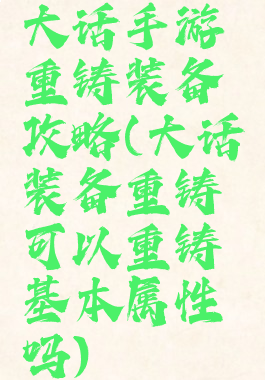 大话手游
重铸装备
攻略(大话
装备重铸
可以重铸
基本属性
吗)